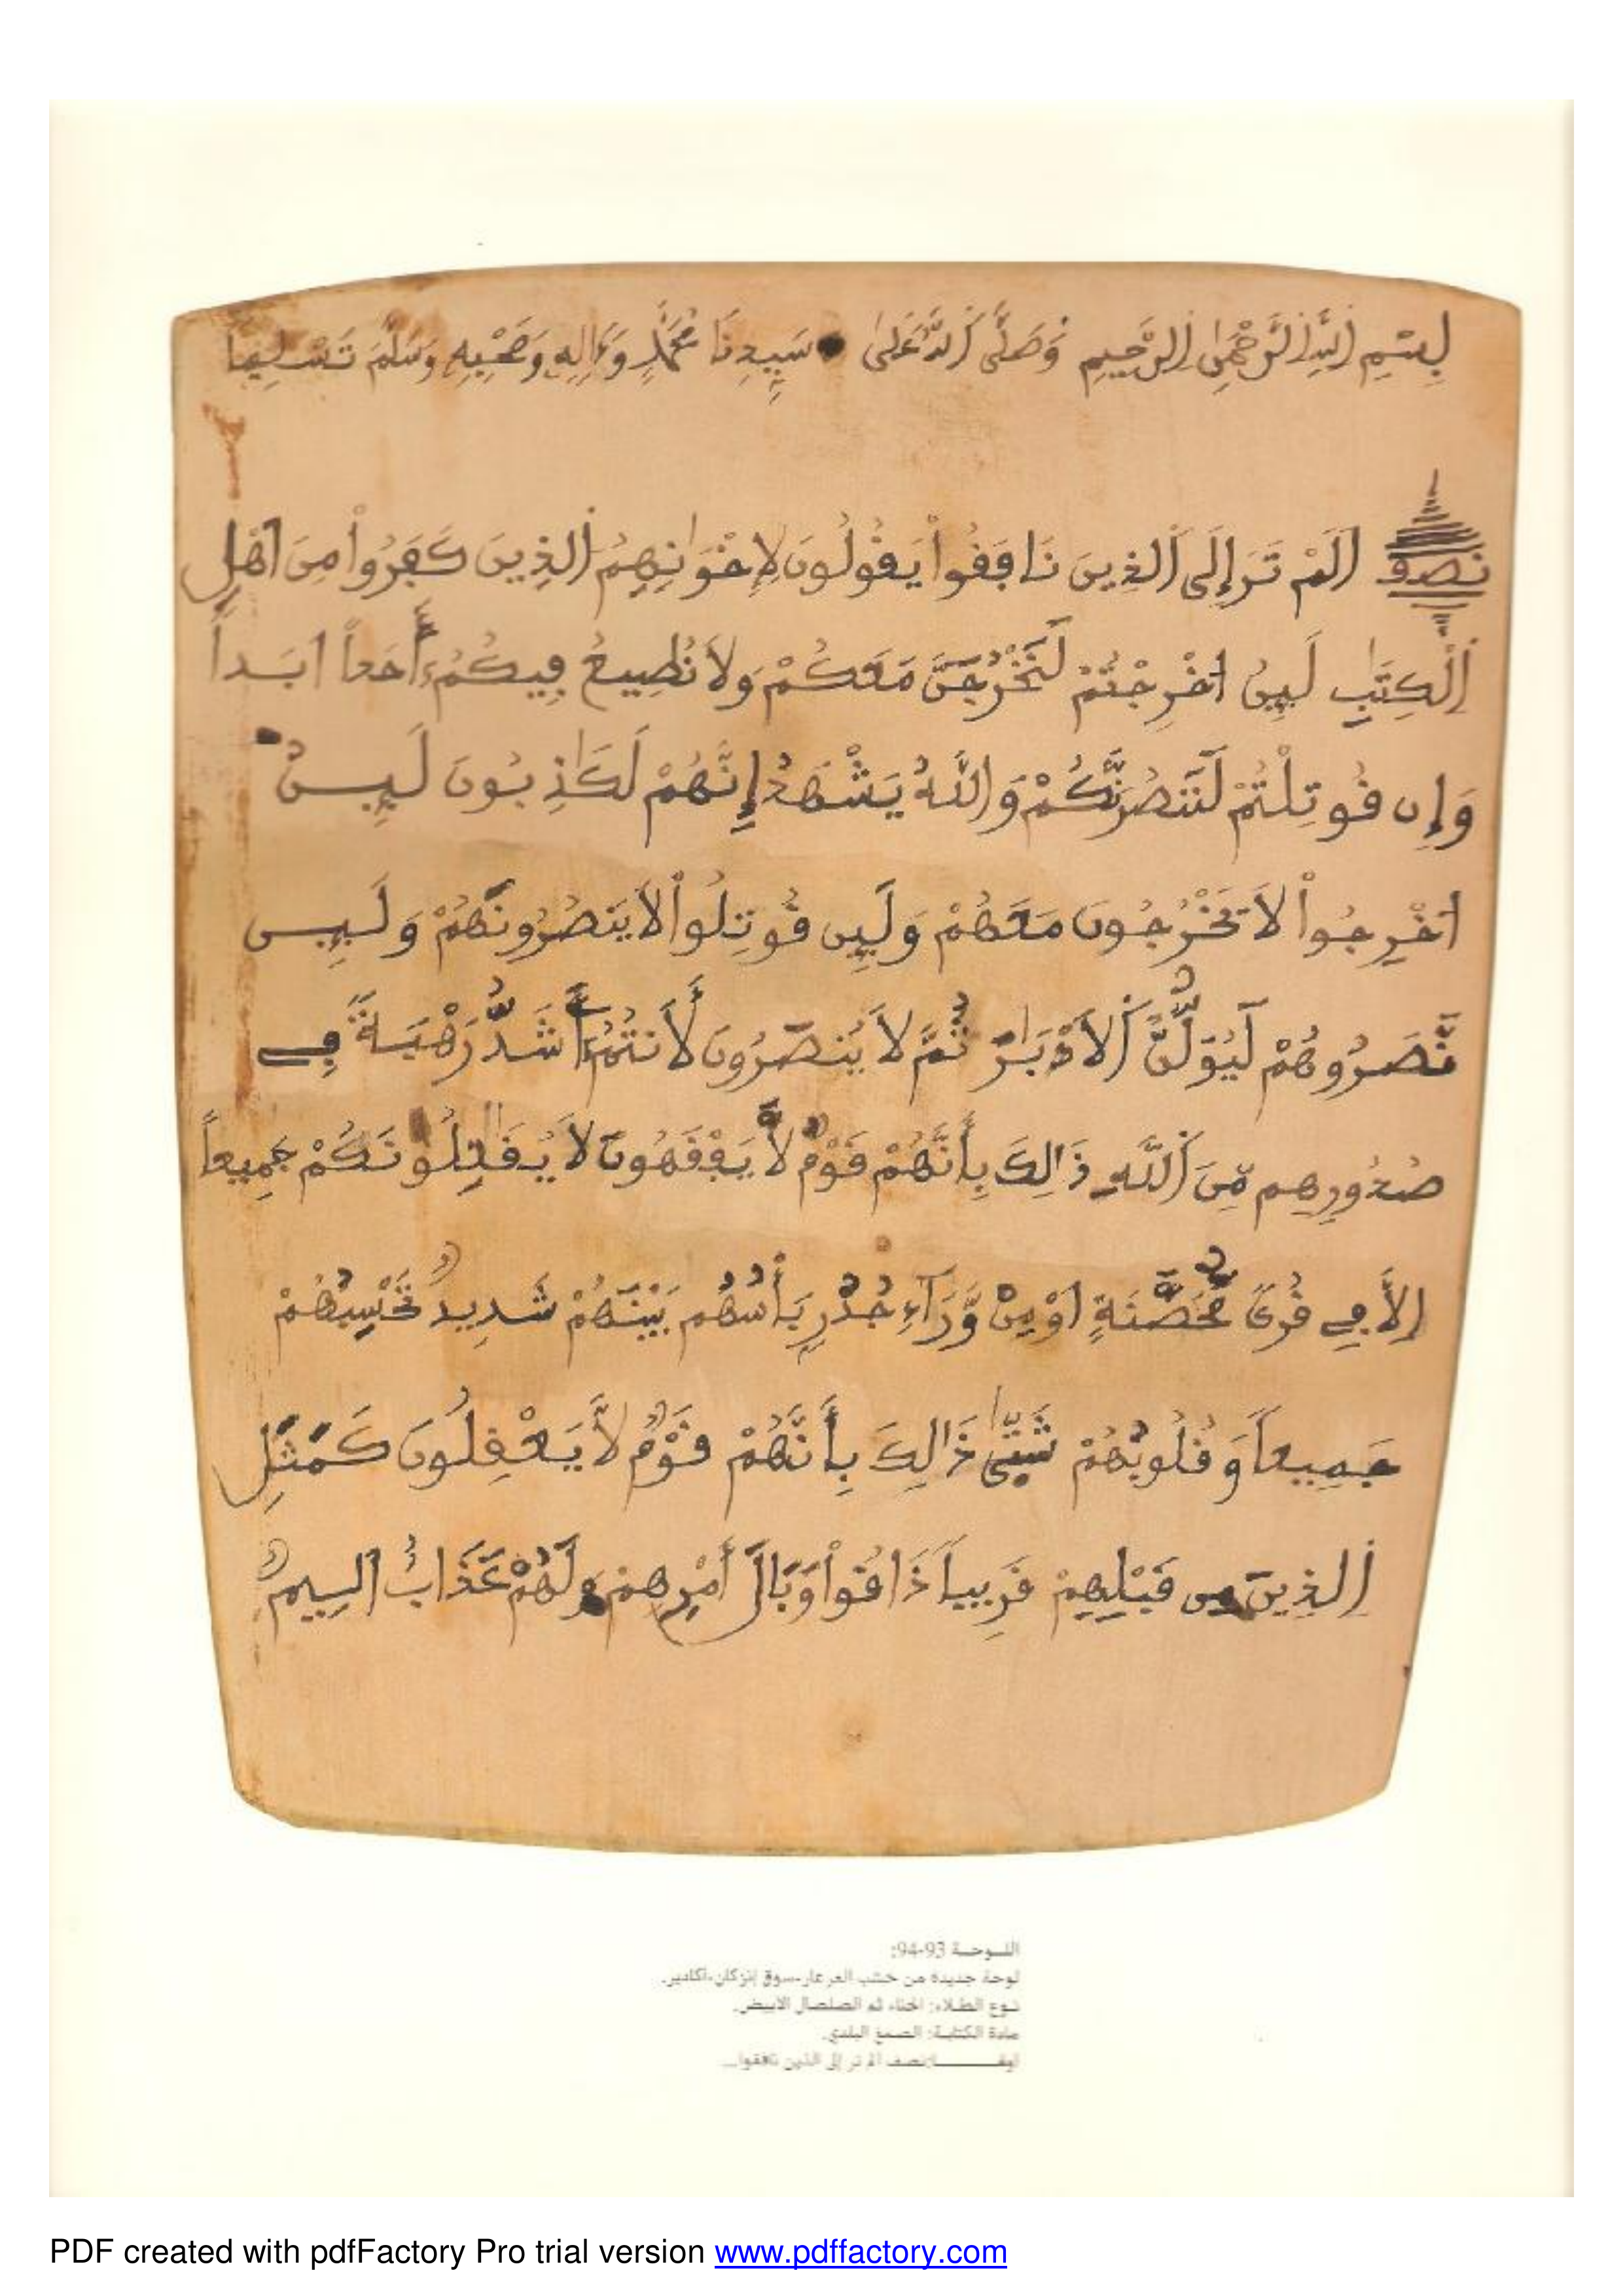 بِسْمِ اِللَّهِ اِلرَّحْمَٰنِ اِلرَّحِيمِ وَصَلَّى اَللَّهُ عَلَىٰ سَيِّدِنَا مُحَمَّدٍ وَءَالِهِ وَصَحْبِهِ وَسَلَّمَ تَسْلِيماً
نصف اَلَمْ تَرَ إِلَى اَلذِينَ نَافَقُواْ يَقُولُونَ لِإِخْوَٰنِهِمُ اُلذِينَ كَفَرُواْ مِنَ اَهْلِ
اِلْكِتَٰبِ لَئِنُ اخْرِجْتُمْ لَنَخْرُجَنَّ مَعَكُمْ وَلَا نُطِيعُ فِيكُمُ أَحَداً اَبَداً
وَإِن قُوتِلْتُمْ لَنَنصُرَنَّكُمْ وَاللَّهُ يَشْهَدُ إِنَّهُمْ لَكَٰذِبُونَ لَئِنُ
اخْرِجُواْ لَا يَخْرُجُونَ مَعَهُمْ وَلَئِن قُوتِلُواْ لَا يَنصُرُونَهُمْ وَلَئِن
نَّصَرُوهُمْ لَيُوَلُّنَّ اَلَادْبَٰرَ ثُمَّ لَا يُنصَرُونَ لَأَنتُمُ أَشَدُّ رَهْبَةً فِے
صُدُورِهِم مِّنَ اَللَّهِ ذَٰلِكَ بِأَنَّهُمْ قَوْمٌ لَّا يَفْقَهُونَ لَا يُقَٰتِلُونَكُمْ جَمِيعاً
اِلَّا فِے قُرىً مُّحَصَّنَةٍ اَوْ مِنْ وَّرَآءِ جُدُرٍ بَأْسُهُم بَيْنَهُمْ شَدِيدٌ تَحْسِبُهُمْ
جَمِيعاً وَقُلُوبُهُمْ شَتَّىٰ ذَٰلِكَ بِأَنَّهُمْ قَوْمٌ لَّا يَعْقِلُونَ كَمَثَلِ
اِلذِينَ مِن قَبْلِهِمْ قَرِيباً ذَاقُواْ وَبَالَ أَمْرِهِمْ وَلَهُمْ عَذَابٌ اَلِيمٌ
اللـوحـة 93-94:
لوحة جديدة من خشب العرعار-سوق إنزكان-أكادير.
نـوع الطـلاء: الحناء ثم الصلصال الأبيض.
مادة الكتابـة: الصمغ البلدي.
نصف ألم تر إلى الذين نافقوا...
PDF created with pdfFactory Pro trial version www.pdffactory.com